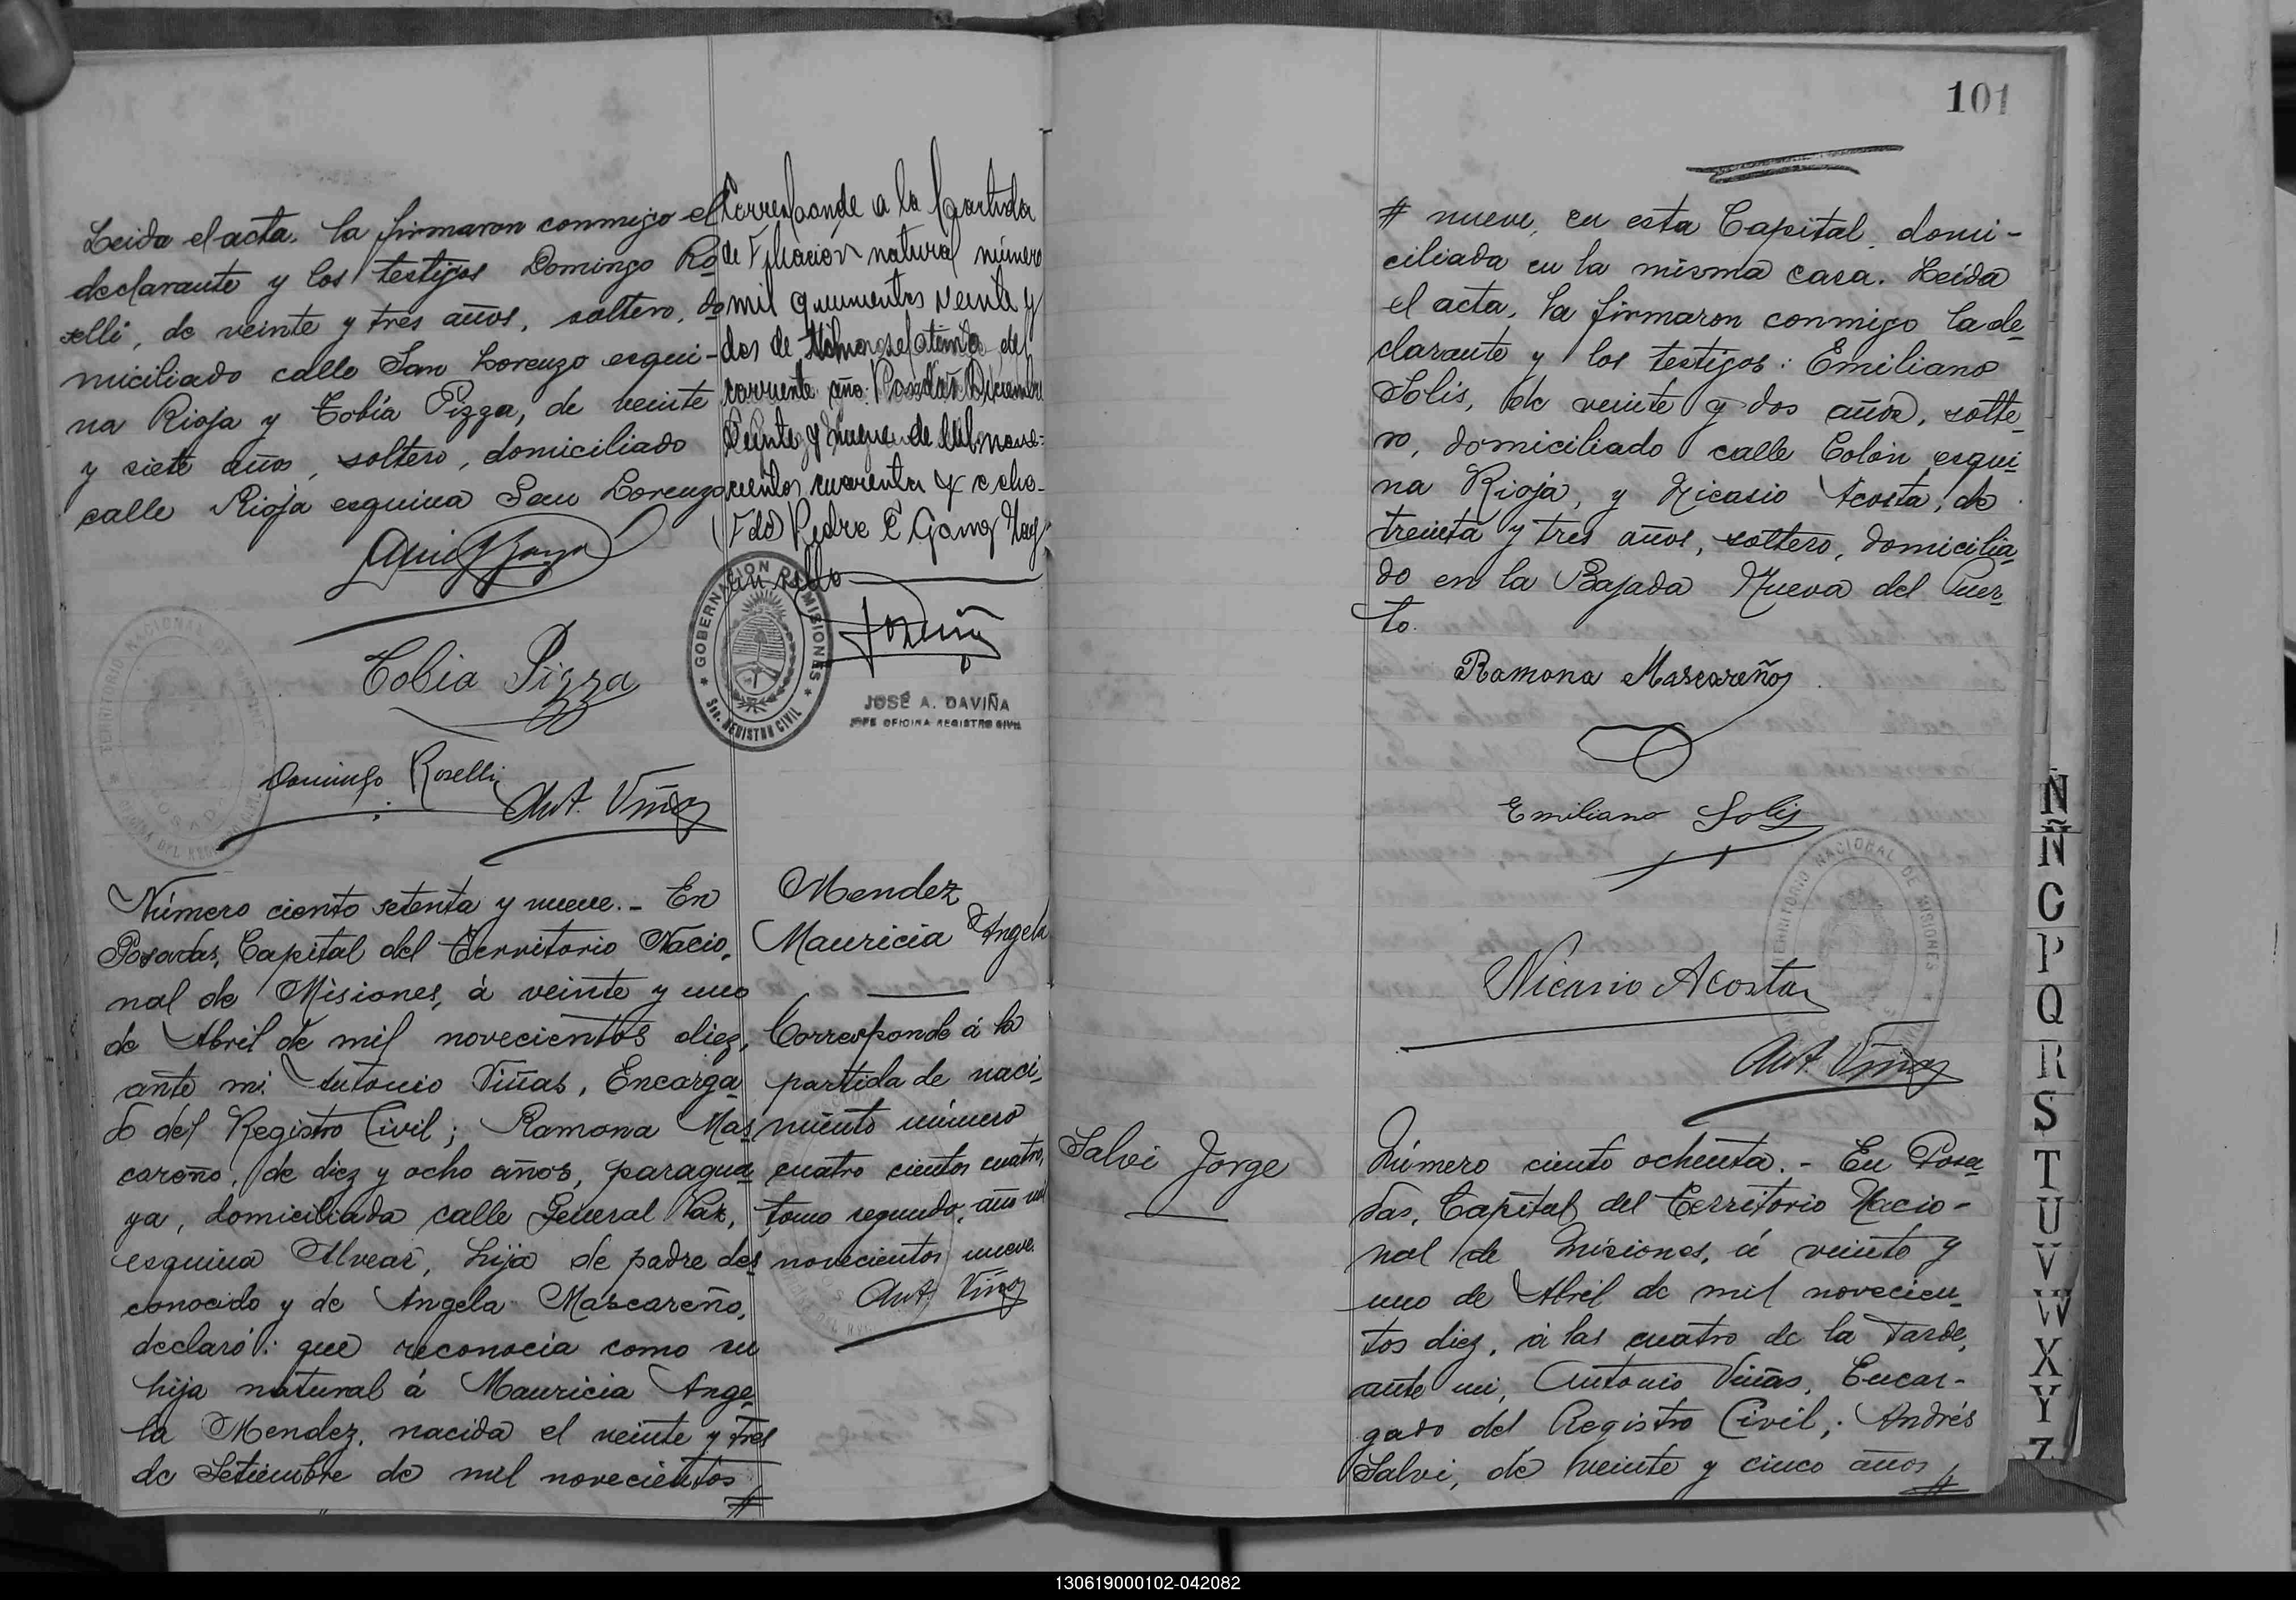 Leida el acta, la firmaron conmigo el
declarante y los testigos Domingo Ro
selli, de veinte y tres años, soltero, do
miciliado calle San Lorenzo esqui-
na Rioja y Tobía Pizza, de veinte
y siete años, soltero, domiciliado
calle Rioja esquina San Lorenzo
Tobia Pizza
Domingo Roselli
Ant. Viñas
Corresponde a la partida
de Filiación natural número
mil quinientos veinte y
dos de
corriente año. Posadas Diciembre
veinte y nueve de mil nove=
cientos cuarenta y ocho-
(Fdo) Pedro E Gomez
sin sello
GOBERNACION DE MISIONES
Sec. REGISTRO CIVIL
JOSÉ A. DAVIÑA
JEFE OFICINA REGISTRO CIVIL
Número ciento setenta y nueve.- En
Posadas, Capital del Territorio Nacio,
nal de Misiones, á veinte y uno
de Abril de mil novecientos diez,
ante mi Antonio Viñas, Encarga
do del Registro Civil; Ramona Mas
careño, de diez y ocho años, paragua
ya, domiciliada calle General Paz,
esquina Alvear, hija de padre des
conocido y de Angela Mascareño,
declaró: que reconocía como su
hija natural á Mauricia Ange
la Mendez, nacida el veinte y tres
de Setiembre de mil novecientos
#
Mendez
Mauricia Angela
Corresponde á la
partida de naci-
miento número
cuatro cientos cuatro,
tomo segundo, año mil
novecientos nueve.
Ant. Viñas
101
# nueve, en esta Capital, domi-
ciliada en la misma casa. Leída
el acta, la firmaron conmigo la de
clarante y los testigos: Emiliano
Solis, de veinte y dos años, solte
ro, domiciliado calle Colón esqui
na Rioja, y Nicasio Acosta, de
treinta y tres años, soltero, domicilia
do en la Bajada Nueva del Puer
to.
Ramona Mascareño
Emiliano Solis
TERRITORIO NACIONAL DE MISIONES
Nicasio Acosta
Ant. Viñas
Salvi Jorge
Número ciento ochenta.- En Posa
das, Capital del Territorio Nacio-
nal de Misiones, á veinte y
uno de Abril de mil novecien
tos diez, á las cuatro de la tarde,
ante mi, Antonio Viñas, Encar-
gado del Registro Civil; Andrés
Salvi, de veinte y cinco años
#
N
Ñ
O
P
Q
R
S
T
U
V
W
X
Y
Z
130619000102-042082